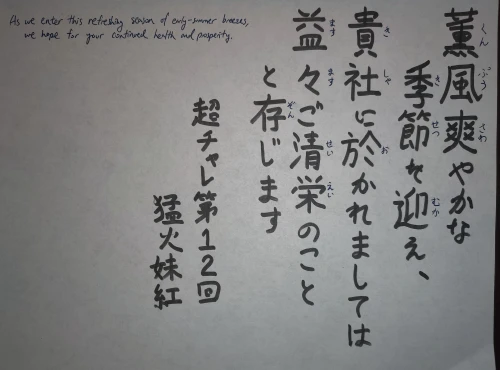 薫風爽やかな
季節を迎え、
貴社に於かれましては
益々ご清栄のこと
と存じます
超チャレ第12回
猛火妹紅
くん
ぷう
さわ
き
せつ
むか
き
しゃ
お
ます
ます
せい
えい
ぞん
As we enter this refreshing season of early-summer breezes,
we hope for your continued health and prosperity.